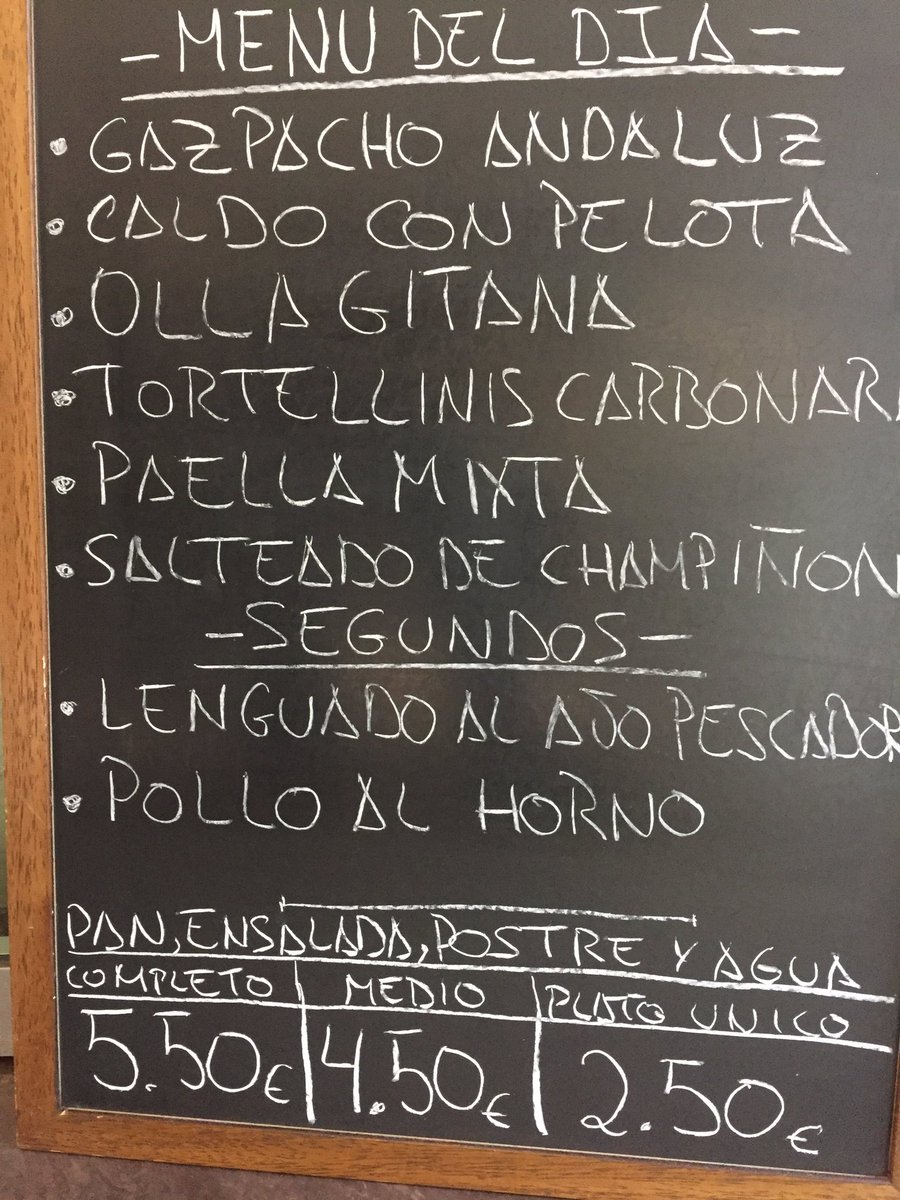 -MENU DEL DIA-
• GAZPACHO ANDALUZ
• CALDO CON PELOTA
• OLLA GITANA
• TORTELLINIS CARBONARA
• PAELLA MIXTA
• SALTEADO DE CHAMPIÑON
-SEGUNDOS-
• LENGUADO AL AJO PESCADOR
• POLLO AL HORNO
PAN, ENSALADA, POSTRE Y AGUA
COMPLETO MEDIO PLATO UNICO
5.50€ 4.50€ 2.50€